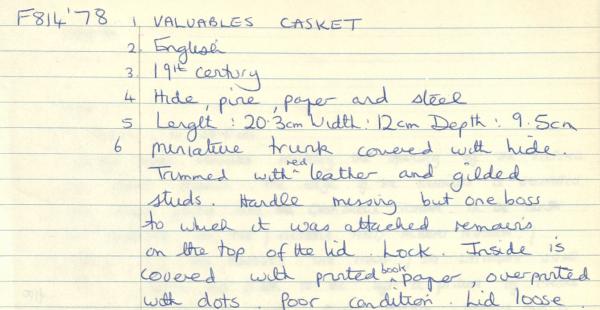 F814'78 1 VALUABLES CASKET
2 English
3 19th century
4 Hide, pine, paper and steel
5 Length: 20.3cm Width: 12cm Depth: 9.5cm
6 miniature trunk covered with hide.
Trimmed with red leather and gilded
studs. Handle missing but one boss
to which it was attached remains
on the top of the lid. Lock. Inside is
covered with printed book paper, overprinted
with dots. Poor condition. Lid loose.